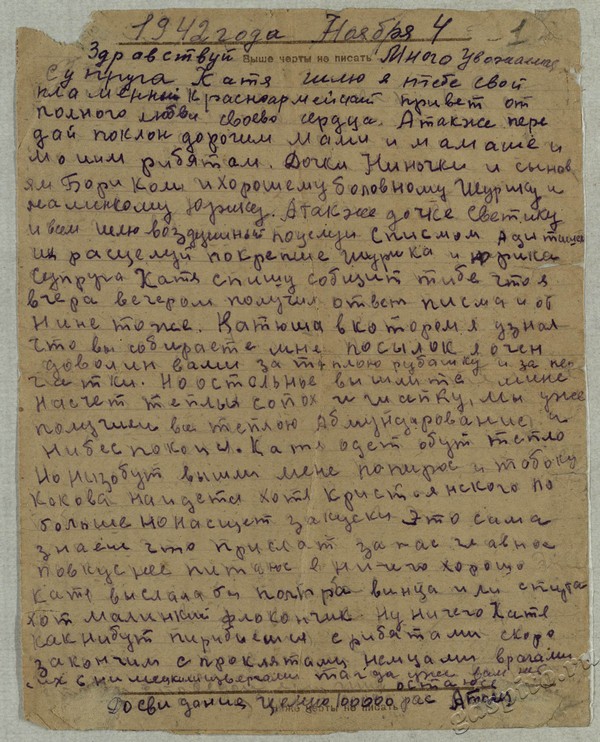 1942 года Ноября 4 1
Здравствуй Выше черты не писать Много уважаемая
супруга Катя шлю я тебе свой
пламенный красноармейский привет от
полного любви своево сердца. А также пере
дай поклон дорогим мами и мамаше и
моиим рибятам. Дочки Ниночки и сынов
ям Бориком и хорошему боловному Шурику и
малинкому Юрику. А также дочке Светику
и всем шлю воздушный поцелуй списмом а детишек
их расцелуй покрепше Шурика и Юрика
Супруга Катя спишу собщит тибе что я
вчера вечером получил ответ писма и от
Нине тоже. Катюша в котором я узнал
что вы собираете мне посылок я очен
доволин вами за тёплою рубашку и за пер
чатки. Но остольное вышлите мине
насчет теплых сопох и шапку, мы уже
получили все теплою Абмундирование и
нибеспокойся. Катя одет обут тепло
Но низобут вышли мене попирос и тобоку
кокова найдется хотя кристоянского по
больше но насчет закуски это сама
знаеш что прислат запас главное
повкуснее питаюс я ничего хорошо
Катя выслала бы полтра винца или спирта
хот малинкий флокончик. Ну ничего Катя
как нибут пирибьемся с рибятами скоро
закончим с проклятами немцами врагами
их тагда уже вам
остаюсь
Досвидания целую 100000 рас
Ниже черты не писать
gasrb.ru